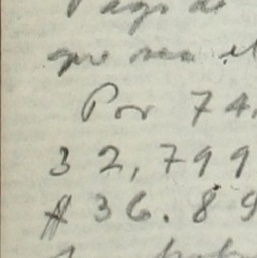 Pago de
que sea el
Por 74.
32,799
$36.89